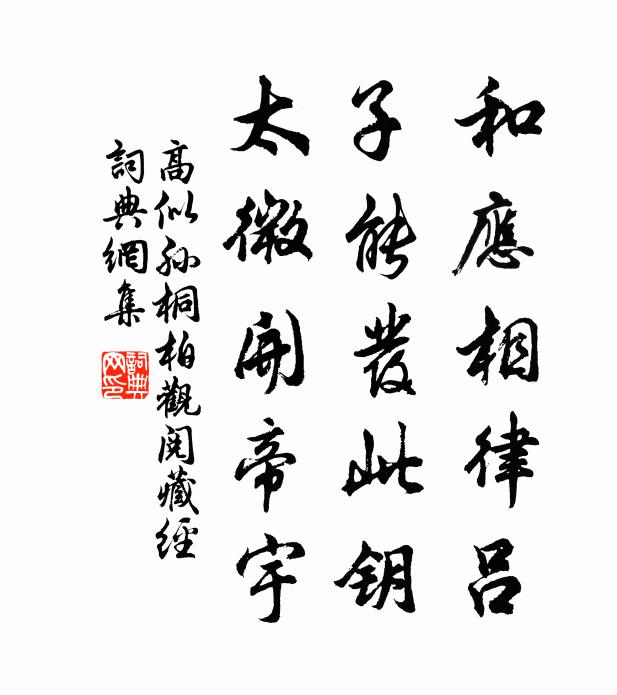 和應相律呂
子能發此钥
太微開帝宇
高似孙桐柏觀閱藏經
詞典網集
詞典網印